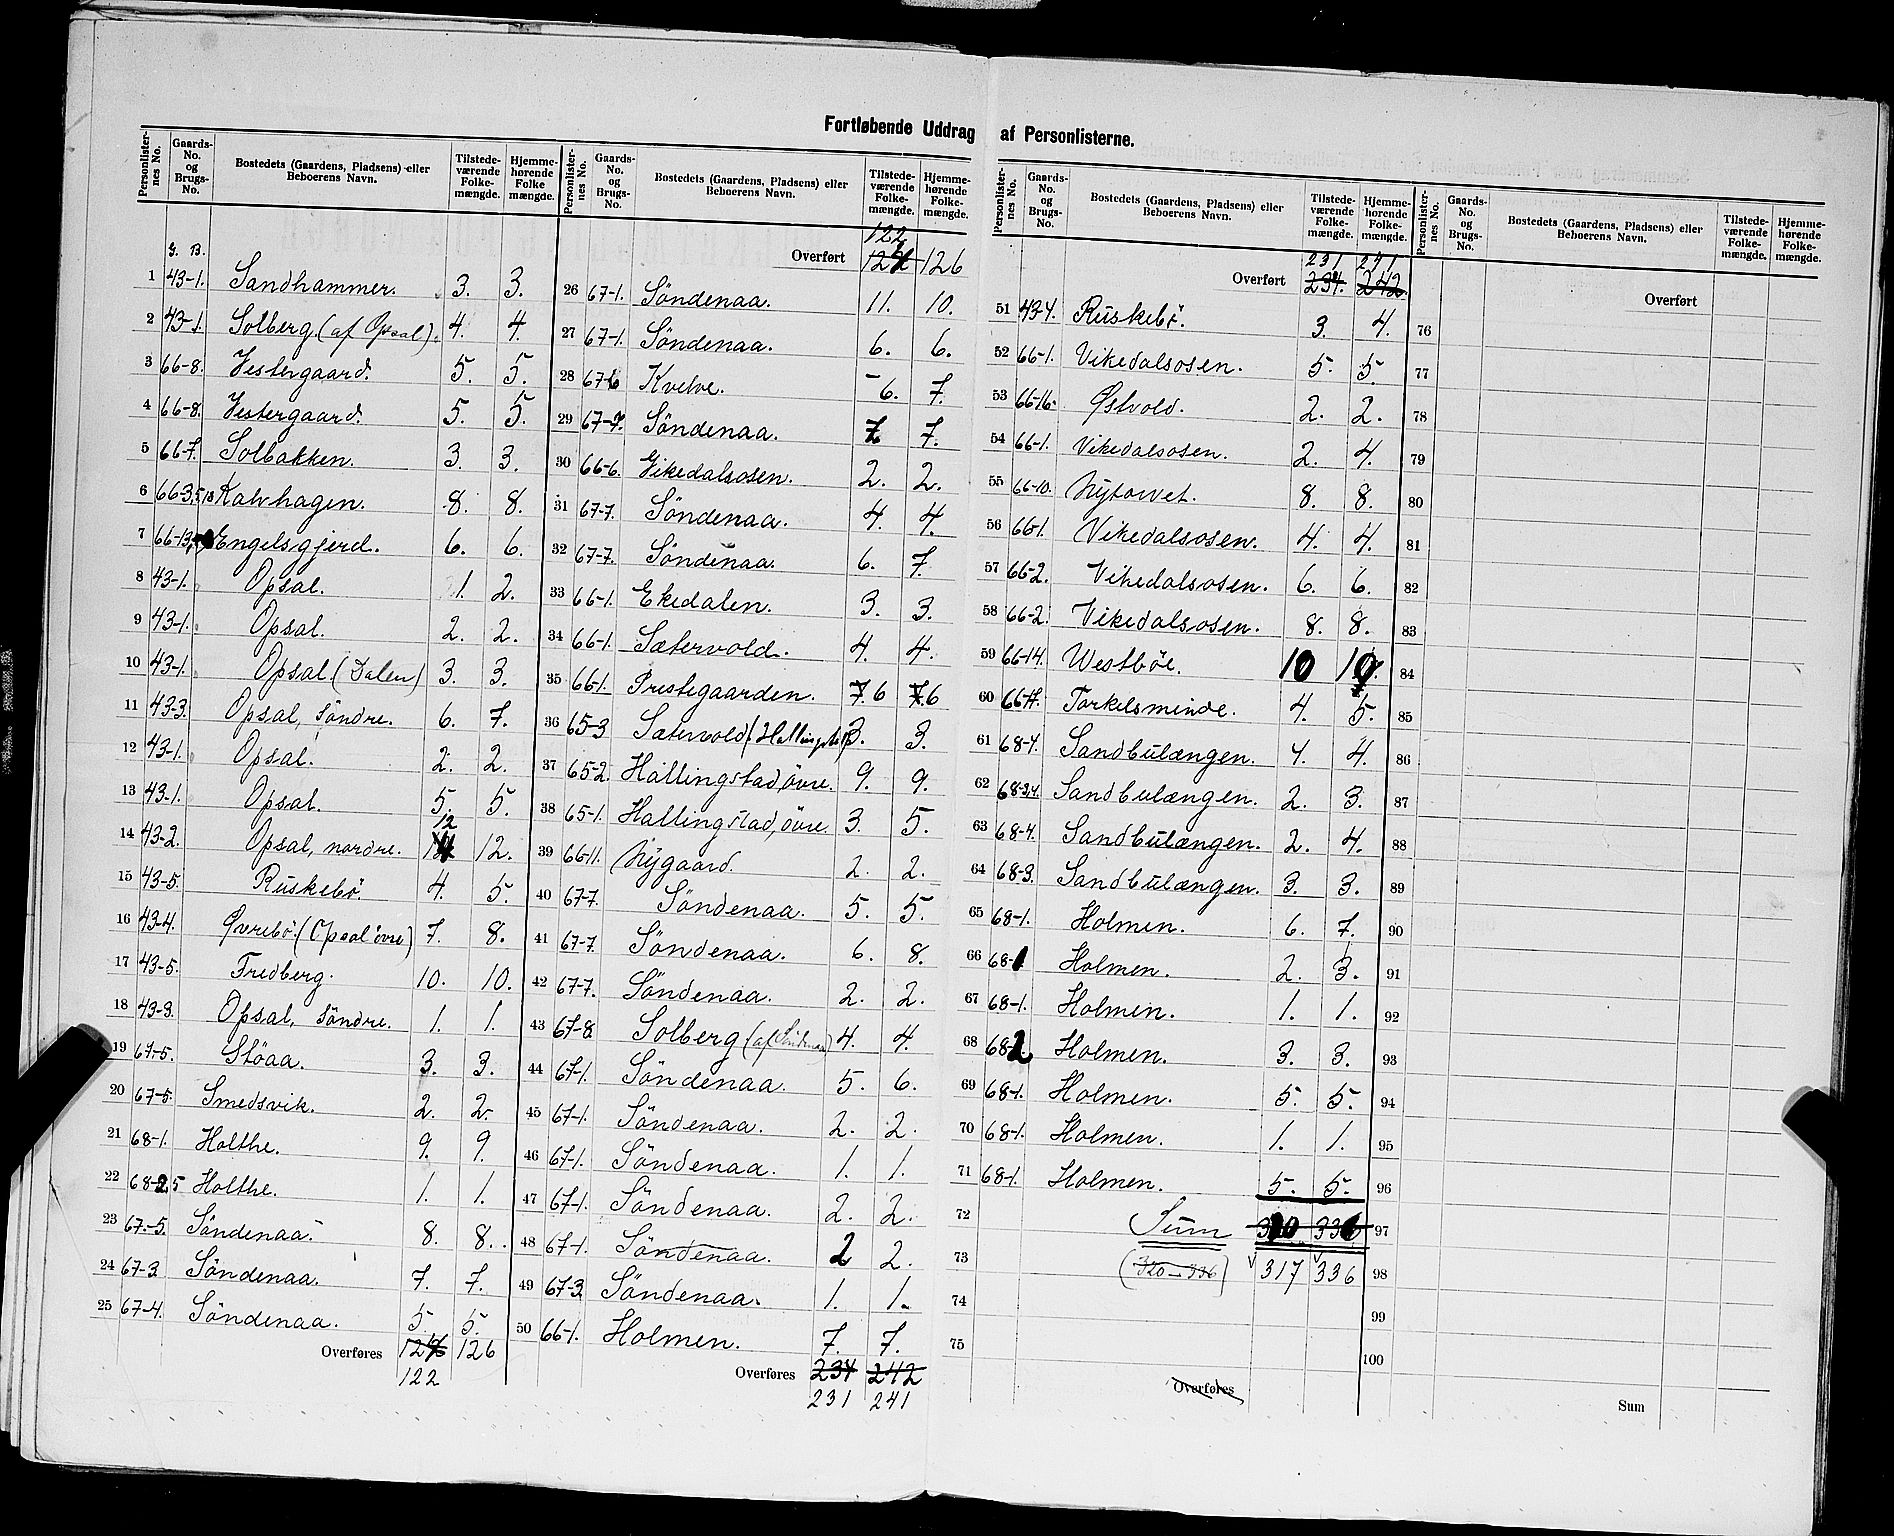 Fortløbende Uddrag af Personlisterne.
Personlisternes No. | Gaards-No. og Brugs-No. | Bostedets (Gaardens, Pladsens) eller Beboerens Navn. | Tilstedeværende Folkemængde. | Hjemmehørende Folkemængde.
G. B.
1 43-1. Sandhammer. 3. 3.
2 43-1. Solberg (af Opsal). 4. 4.
3 66-8. Vestergaard. 5. 5.
4 66-8. Vestergaard. 5. 5.
5 66-7. Solbakken. 3. 3.
6 66-3,5,13 Kalvhagen. 8. 8.
7 66-13, Engelsgjerd. 6. 6.
8 43-1. Opsal. 1. 2.
9 43-1. Opsal. 2. 2.
10 43-1. Opsal (Dalen) 3. 3.
11 43-3. Opsal, søndre. 6. 7.
12 43-1. Opsal. 2. 2.
13 43-1. Opsal. 5. 5.
14 43-2. Opsal, nordre. 12 12.
15 43-5. Ruskebö. 4. 5.
16 43-4. Øvrebö. (Opsal övre) 7. 8.
17 43-5. Fredberg. 10. 10.
18 43-3. Opsal, söndre. 1. 1.
19 67-5. Stöaa. 3. 3.
20 67-5. Smedsvik. 2. 2.
21 68-1. Holthe. 9. 9.
22 68-2,5 Holthe. 1. 1.
23 67-5. Söndenaa. 8. 8.
24 67-3. Söndenaa. 7. 7.
25 67-4. Söndenaa. 5. 5.
Overføres 124 126
122
Personlisternes No. | Gaards-No. og Brugs-No. | Bostedets (Gaardens, Pladsens) eller Beboerens Navn. | Tilstedeværende Folkemængde. | Hjemmehørende Folkemængde.
122
Overført 124 126
26 67-1. Söndenaa. 11. 10.
27 67-1. Söndenaa. 6. 6.
28 67-6 Kvelve. 6. 7.
29 67-7. Söndenaa. 7 7.
30 66-6. Vikedalsosen. 2. 2.
31 67-7. Söndenaa. 4. 4.
32 67-7. Söndenaa. 6. 7.
33 66-1. Ekedalen. 3. 3.
34 66-1. Sætervold. 4. 4.
35 66-1. Prestegaarden. 7. 6 7. 6
36 65-3 Sætervold (Hallingstad) 3. 3.
37 65-2. Hallingstad, övre. 9. 9.
38 65-1. Hallingstad, övre. 3. 5.
39 66-11. Nygaard. 2. 2.
40 67-7. Söndenaa. 5. 5.
41 67-7. Söndenaa. 6. 8.
42 67-7. Söndenaa. 2. 2.
43 67-8 Solberg (af Söndenaa) 4. 4.
44 67-1. Söndenaa. 5. 6.
45 67-1. Söndenaa. 2. 2.
46 67-1. Söndenaa. 1. 1.
47 67-1. Söndenaa. 2. 2.
48 67-1. Söndenaa. 2 2.
49 67-3 Söndenaa. 1. 1.
50 66-1. Holmen. 7. 7.
Overføres 234 242
231 241
Personlisternes No. | Gaards-No. og Brugs-No. | Bostedets (Gaardens, Pladsens) eller Beboerens Navn. | Tilstedeværende Folkemængde. | Hjemmehørende Folkemængde.
231 241
Overført 234. 242.
51 43-4. Ruskebö. 3. 4.
52 66-1. Vikedalsosen. 5. 5.
53 66-16. Østvold. 2. 2.
54 66-1. Vikedalsosen. 2. 4.
55 66-10. Nytorvet. 8. 8.
56 66-1. Vikedalsosen. 4. 4.
57 66-2. Vikedalsosen. 6. 6.
58 66-2. Vikedalsosen. 8. 8.
59 66-14. Westböe. 10 10.
60 66-4. Torkelsminde. 4. 5.
61 68-4. Sandbulængen. 4. 4.
62 68-3,4. Sandbulængen. 2. 3.
63 68-4. Sandbulængen. 2. 4.
64 68-3. Sandbulængen. 3. 3.
65 68-1. Holmen. 6. 7.
66 68-1 Holmen. 2. 3.
67 68-1. Holmen. 1. 1.
68 68-2 Holmen. 3. 3.
69 68-1. Holmen. 5. 5.
70 68-1. Holmen. 1. 1.
71 68-1. Holmen. 5. 5.
72 Sum 320 336
73 (320-336) 317 336
74
75
Overføres
Personlisternes No. | Gaards-No. og Brugs-No. | Bostedets (Gaardens, Pladsens) eller Beboerens Navn. | Tilstedeværende Folkemængde. | Hjemmehørende Folkemængde.
Overført
76
77
78
79
80
81
82
83
84
85
86
87
88
89
90
91
92
93
94
95
96
97
98
99
100
Sum